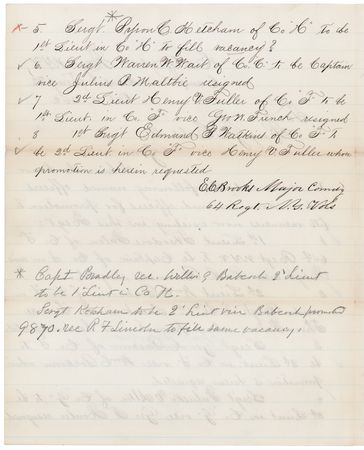 *
× 5 Sergt. C. Ketcham of Co "H" to be
1st Lieut in Co "H" to fill vacancy?
✓ 6 Sergt Warren W. Wait of Co. "C" to be Captain
vice Julius P. Maltbie resigned
✓ 7 2d Lieut Henry V. Fuller of Co "F" to be
1st. Lieut. in C. F vice Geo W. French resigned
8 1st Sergt Edmund Watkins of Co F to
✓ be 2d Lieut. in C. F vice Henry V. Fuller whose
promotion is herein requested
E C Brooks Major Comdg
64 Regt. N.Y. Vols
* Capt Bradley rec. Willis G Babcock 2d Lieut
to be 1 Lieut in Co H.
Sergt Ketcham to be 2d Lieut vice Babcock promoted
rec R F Lincoln to fill same vacancy.